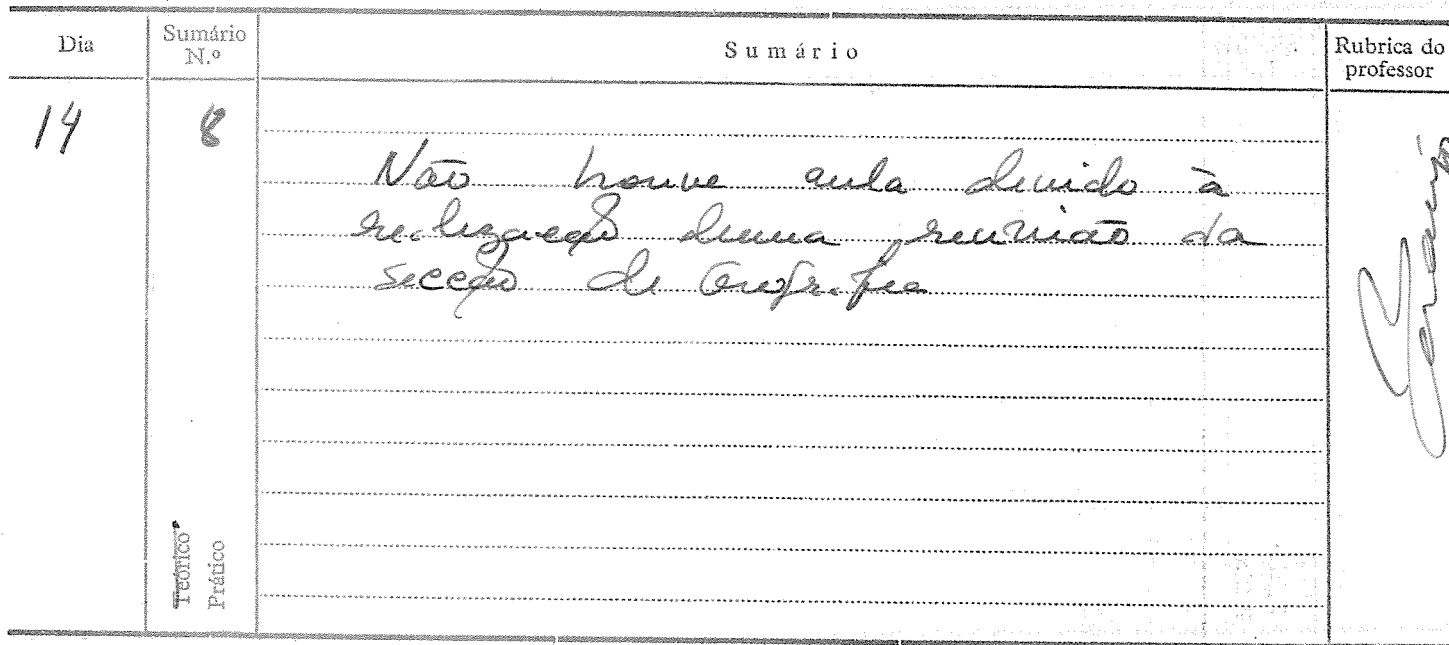 Dia
Sumário
N.º
Sumário
Rubrica do
professor
14
8
Não houve aula devido à
realização duma reunião da
secção de Geografia
Teórico
Prático